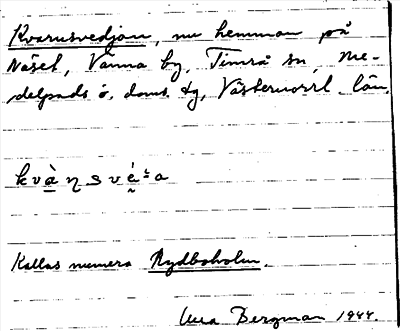 Kvarnsvedjan, nu hemman på
Näset, Vanna by, Timrå sn, Me-
delpads ö. doms. tg, Västernorrl. län.
Kallas numera Rydboholm.
Bergman 1944.